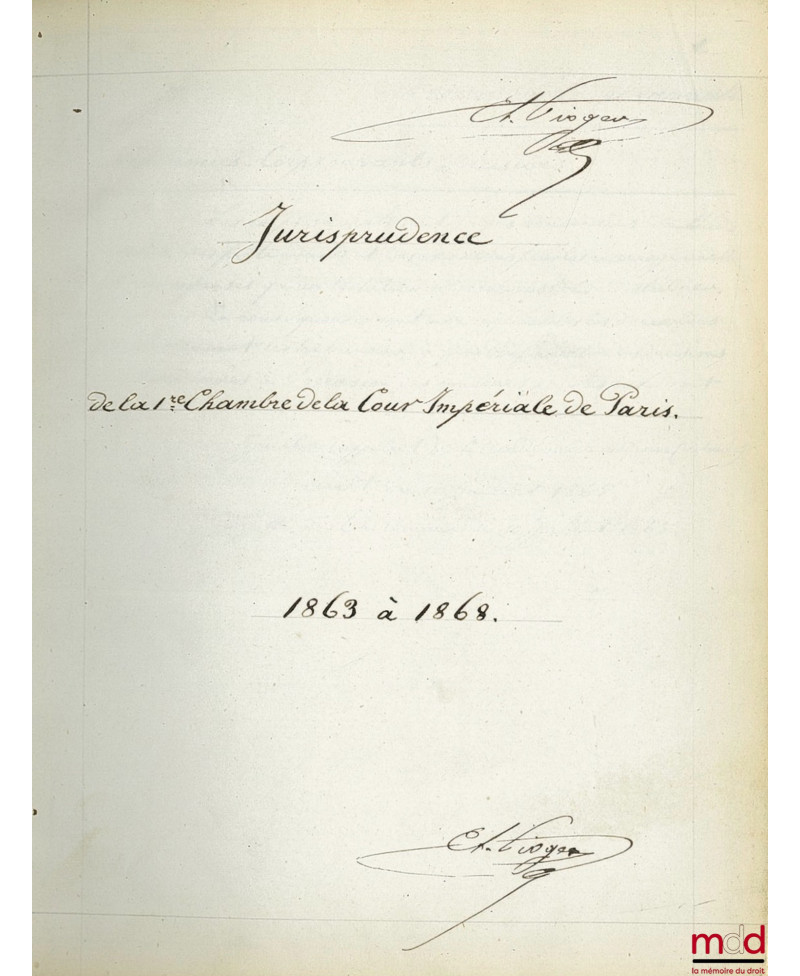 Jurisprudence
de la 1re Chambre de la Cour Impériäle de Paris.
1863 à 1868.
mdd
la mémoire du droit